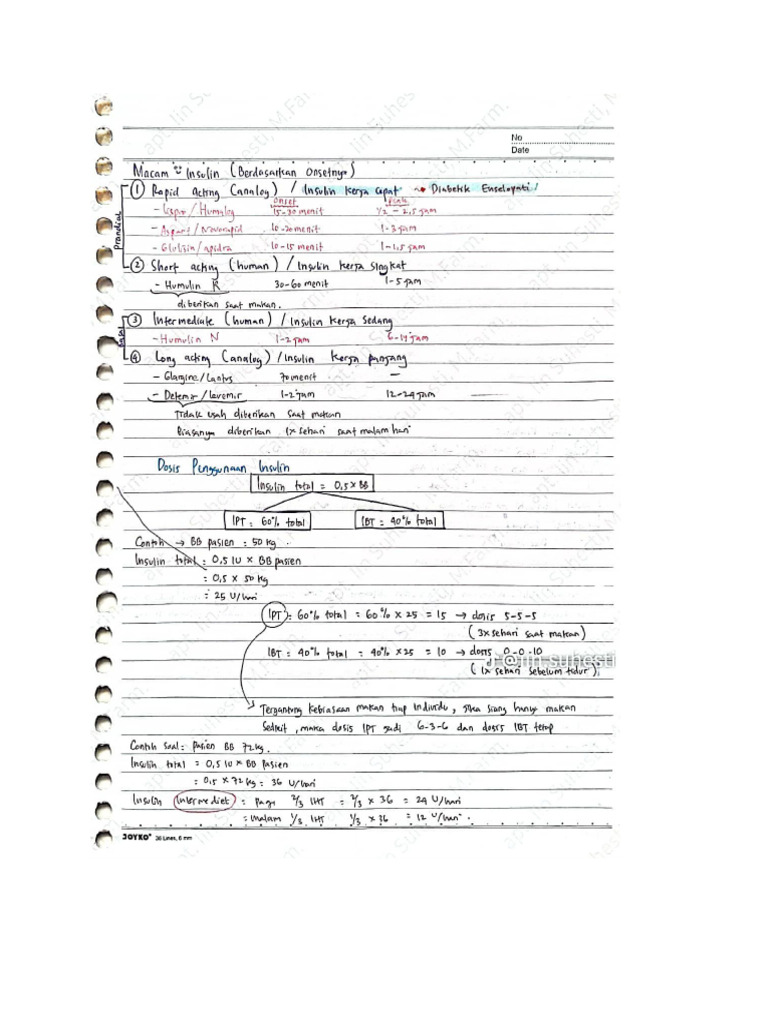 No
Date
Macam" Insulin (Berdasarkan Onsetnya)
Prandial
① Rapid acting (analog) / Insulin kerja cepat → Diabetik
onset
- Lispro / Humalog 15-30 menit 1/2 - 2,5 jam
- Aspart / Novorapid 10-20 menit 1-3 jam
- Glulizin / apidra 10-15 menit 1-1,5 jam
② Short acting (human) / Insulin kerja singkat
- Humulin R 30-60 menit 1-5 jam
diberikan saat makan.
Basal
③ Intermediate (human) / Insulin kerja sedang
- Humulin N 1-2 jam 6-14 jam
④ Long acting (analog) / Insulin kerja panjang
- Glargine / Lantus 70 menit -
- Detemir / Levemir 1-2 jam 12-24 jam
Tidak usah diberikan saat makan
Biasanya diberikan 1x sehari saat malam hari
Dosis Penggunaan Insulin
Insulin total = 0,5 x BB
IPT = 60% total IBT = 40% total
Contoh → BB pasien = 50 kg.
Insulin total = 0,5 IU x BB pasien
= 0,5 x 50 kg
= 25 U/hari
IPT = 60% total = 60% x 25 = 15 → dosis 5-5-5
(3x sehari saat makan)
IBT = 40% total = 40% x 25 = 10 → dosis 0-0-10
@iin.suhesti
(1x sehari sebelum tidur)
Tergantung kebiasaan makan tiap individu, jika siang hanya makan
sedikit, maka dosis IPT jadi 6-3-6 dan dosis IBT tetap
Contoh soal = pasien BB 72 kg.
Insulin total = 0,5 IU x BB pasien
= 0,5 x 72 kg = 36 U/hari
Insulin Intermediet = Pagi 2/3 IHT = 2/3 x 36 = 24 U/hari
= malam 1/3 IHT 1/3 x 36 = 12 U/hari.
JOYKO 36 Lines, 6 mm
apt. Iin Suhesti, M.Farm.